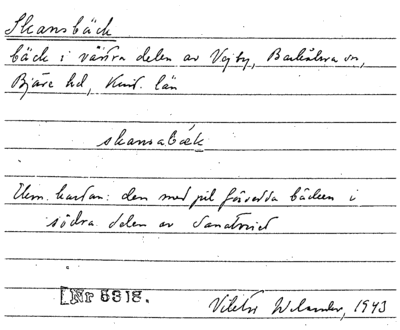 Skansbäck
bäck i västra delen av Vejby, Barkåkra sn,
Bjäre hd, Krist. län
skansabæk
Ekon. kartan: den med pil försedda bäcken i
södra delen av
[Nr 5318.
Viktor Welander, 1943